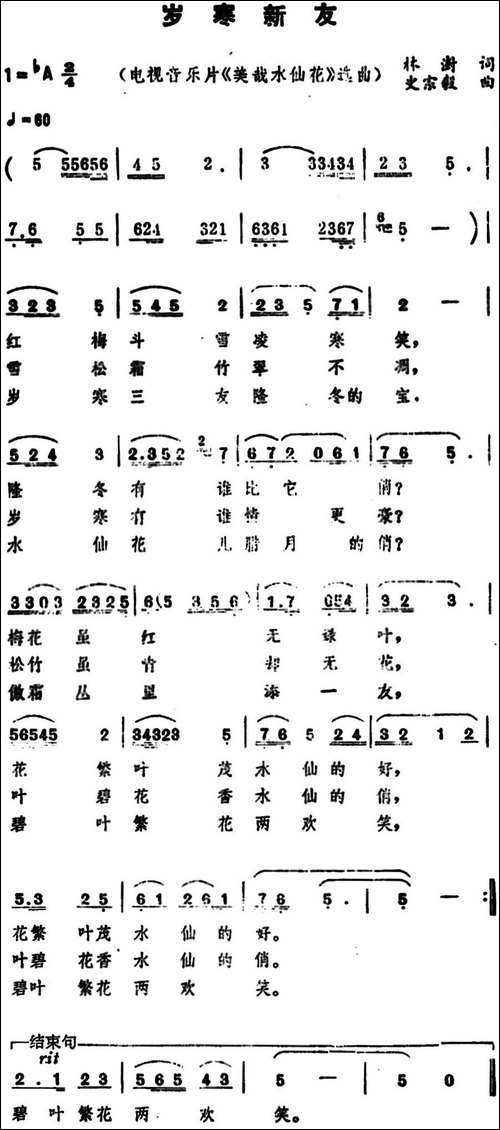 岁寒新友
1=♭A 2/4
（电视音乐片《美哉水仙花》选曲）
林澍 词
史宗毅 曲
♩=60
( 5 55656 | 4 5 2. | 3 33434 | 2 3 5. |
7.6 5 5 | 624 321 | 6361 2367 | 5 — ) |
323 5 | 545 2 | 23 5 71 | 2 — |
红梅斗雪凌寒笑，
雪松霜竹翠不凋，
岁寒三友隆冬的宝，
524 3 | 2.352 7 | 672 061 | 76 5. |
隆冬有谁比它俏？
岁寒有谁情更豪？
水仙花儿腊月的俏？
3303 2325 | 6( 3 56) | 1.7 654 | 32 3. |
梅花虽红无绿叶，
松竹虽青却无花，
傲霜丛里添一友，
56545 2 | 34323 5 | 76 5 24 | 32 1 2 |
花繁叶茂水仙的好，
叶碧花香水仙的俏，
碧叶繁花两欢笑，
5.3 25 | 61 261 | 76 5. | 5 — :|
花繁叶茂水仙的好。
叶碧花香水仙的俏。
碧叶繁花两欢笑。
结束句
rit
2.1 23 | 565 43 | 5 — | 5 0
碧叶繁花两欢笑。